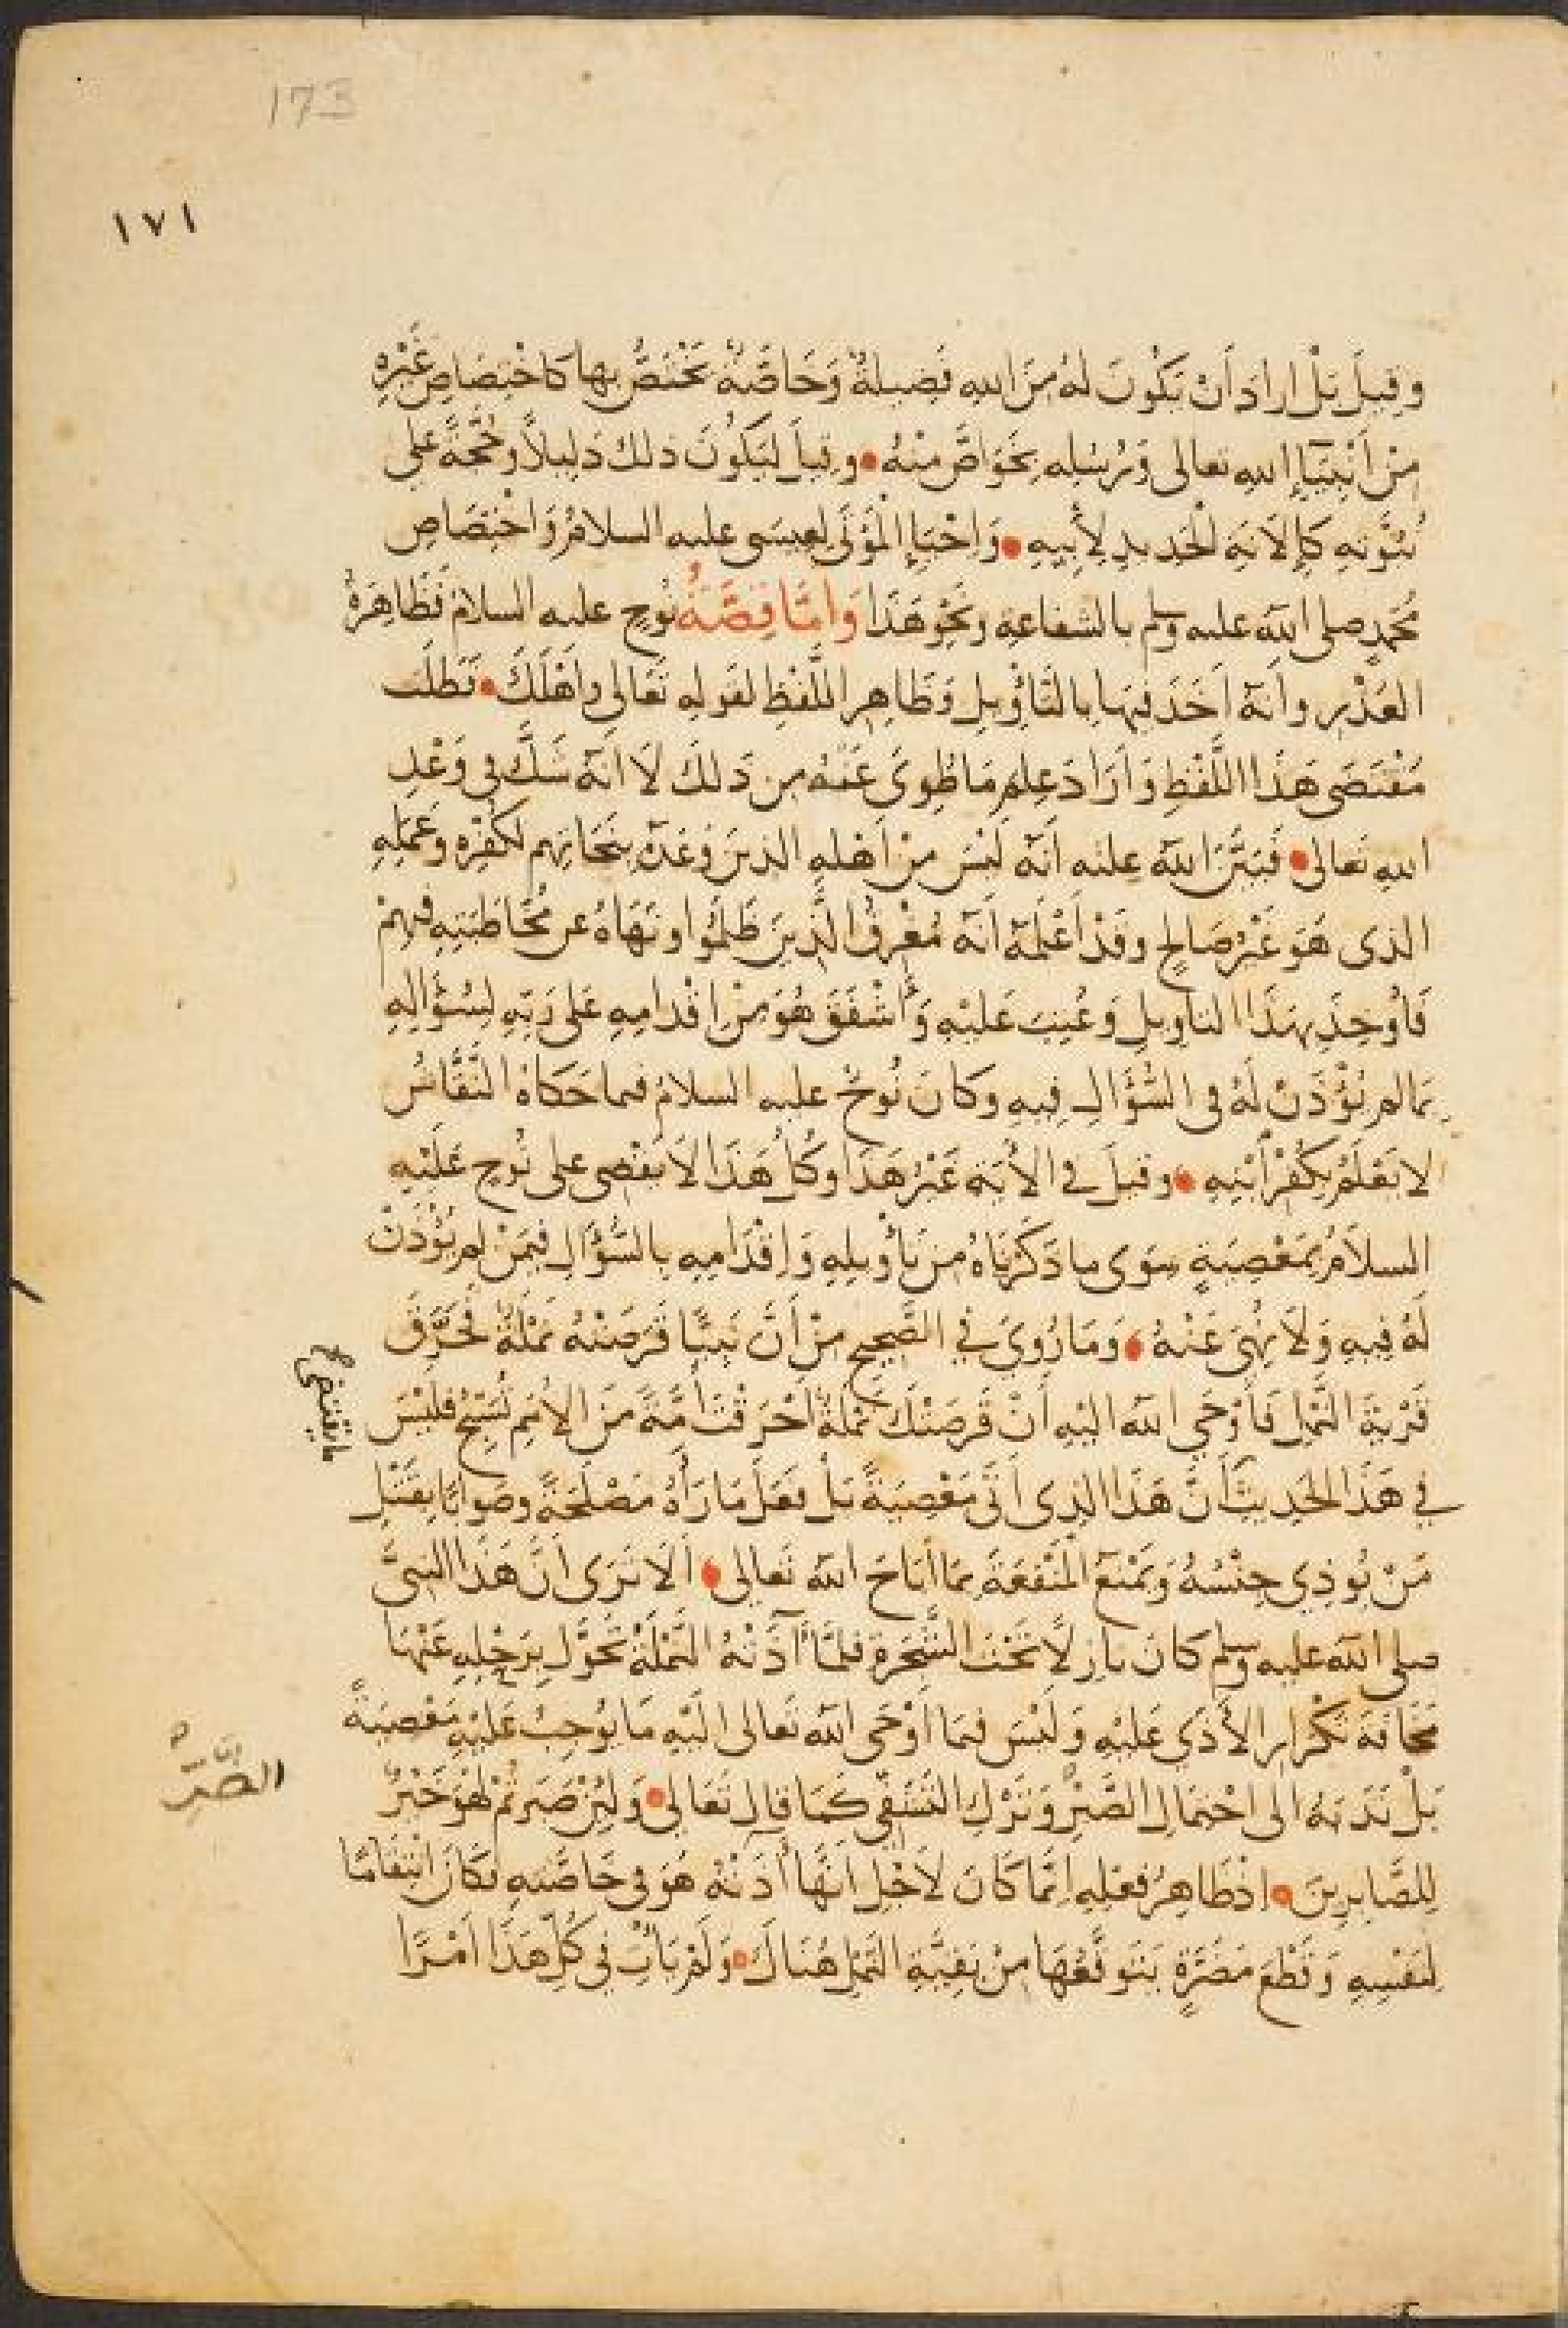 173
١٧١
وقِيلَ بَلْ ارادَ اَنْ تَكُونَ لهُ مِنَ اللهِ فَضِيلةٌ وَخَاصَّةٌ يَخْتَصُّ بها كاخْتِصَاصِ غَيْرِهِ
مِنْ اَنْبِيَآءِ اللهِ تعالى وَرُسُلِه بِخَوَاصَّ مِنْهُ وقِيلَ لِيَكُونَ ذلك دَلِيلاً وحُجَّةً على
نُبُوَّتِهِ كَإِلَانَةِ الْحَدِيدِ لِأَبِيهِ وَاِحْيَاءِ الْمَوْتَى لِعِيسَى عليه السلامُ وَاخْتِصَاصِ
مُحَمدٍ صلى الله عليه وسلم بالشفاعةِ ونَحْوِ هَذَا وَامَّا قِصَّةُ نُوحٍ عليه السلام فَظَاهِرَةُ
العُذْرِ وأنهُ اَخَذَ فيهَا بالتَّأْوِيلِ وَظَاهِرِ اللَّفْظِ لقولِهِ تَعَالى واَهْلَكَ فَطَلَبَ
مُقْتَضَى هَذَا اللَّفْظِ وَاَرَادَ عِلمَ مَا طُوِىَ عَنْهُ من ذَلكَ لَا انهُ شَكَّ في وَعْدِ
اللهِ تعالى فَبَيَّنَ اللهُ عليْه اَنهُ لَيْسَ مِنْ اَهْلِهِ الذينَ وَعَدَهُ بِنَجَاتِهم لكُفْرِهِ وعَمَلِهِ
الذى هَوَ غَيْرُ صَالحٍ وقَدْ اَعْلَمَهُ اَنهُ مُغْرِقُ الَّذِينَ ظَلَمُوا ونَهَاهُ عن مُخَاطَبَتِهِ فيهِمْ
فَاُوخِذَ بِهَذَا التاوِيلِ وَعُتِبَ عَليْهِ وَأَشْفَقَ هُوَ مِنْ اِقْدامِهِ عَلى رَبِّهِ لِسُؤَالِهِ
مَا لم يُؤْذَنْ لَهُ في السُّؤَالِ فِيهِ وكانَ نُوحٌ عليه السلامُ فيما حَكَاهُ النَّقَّاشُ
لا يَعْلَمُ بِكُفْرِ اَبْنِهِ وقيلَ في الْأيَةِ غَيْرُ هَذَا وكُلُ هَذَا لاَ يَقْضِى على نُوحٍ عَلَيْهِ
السلاَمُ بِمَعْصِيَةٍ سِوَى ما ذَكَرْنَاهُ مِن تَأْوِيلِهِ وَاِقْدَامِهِ بالسُّؤَالِ فيمَنْ لم يُؤْذَنْ
لَهُ فِيهِ وَلاَ نُهِىَ عَنْهُ وَمَا رُوِىَ في الصَّحِيحِ مِنْ اَنَّ نَبِيًّا قَرَصَتْهُ نَمْلَةٌ فَحَرَّقَ
قَرْيَةَ النَّمْلِ فَأَوْحَى اللهُ اليْهِ اَنْ قَرَصَتْكَ نَمْلَةٌ اَحْرَقْتَ اُمَّةً مِنَ الاُمَمِ تُسَبِّحُ فليْسَ
ما يقتضى صح
في هَذَا الْحَدِيثِ اَنَّ هَذَا الذِى اَتَى مَعْصِيَةٌ بَلْ فَعَلَ مَا رَآهُ مَصْلَحَةً وصَوابًا بِقَتْلِ
مَنْ يُوذِي جِنْسُهُ وَيَمْنَعُ الْمَنْفَعَةَ بِمَا اَبَاحَ اللهُ تَعالى اَلَا تَرَى اَنَّ هَذَا النبىَّ
صلى الله عليه وسلم كانَ نازِلاً تَحْتَ الشَّجَرَةِ فلمَّا آذَتْهُ النَّمْلَةُ تَحَوَّل بِرَحْلِهِ عَنْهَا
مَخَافَةَ تَكْرَارِ الأَذَى عَليْهِ وَلَيْسَ فيمَا اَوْحَى اللهُ تعالى الَيْهِ مَا يُوجِبُ عَليْهِ مَعْصِيَةً
بَلْ نَدَبَهُ الى احْتِمَالِ الصَّبْرِ وَتَرْكِ التَّشَفِّى كَمَا قال تَعَالى وَلَئِنْ صَبَرتُمْ لَهُوَ خَيْرٌ
لِلصَّابِرِينَ اِذْ ظَاهِرُ فِعْلِهِ اِنَّمَا كَانَ لِأَجْلِ اَنَّهَا آذَتْهُ هُوَ في خَاصَّتِهِ فكَانَ انْتِقَامًا
لِنَفْسِهِ وَقَطْعَ مَضَرَّةٍ يَتَوَقَّعُهَا مِنْ بَقِيَّةِ النَّمْلِ هُنَاكَ وَلَمْ يَأْتِ في كُلِّ هَذَا اَمْرًا